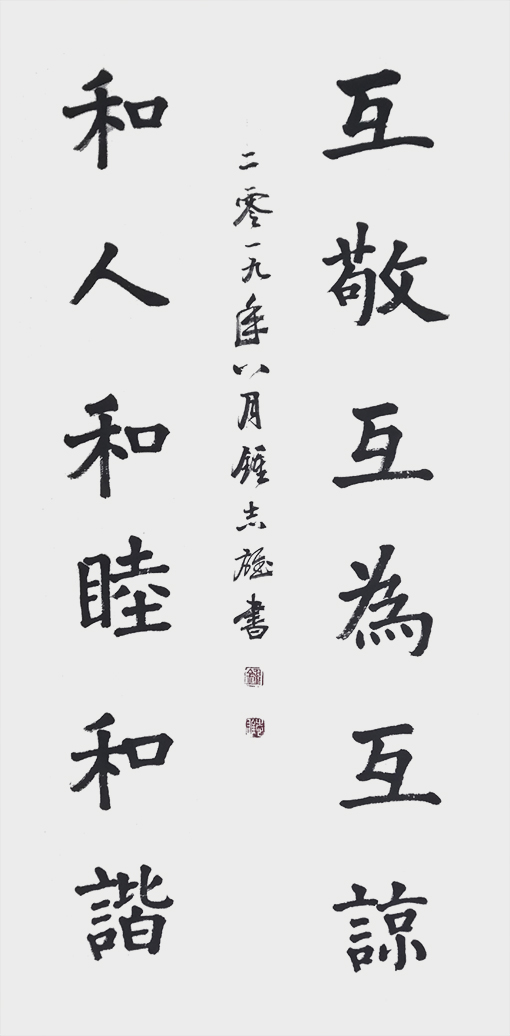 互敬互為互諒
二零一九年八月鍾志雄書
和人和睦和諧